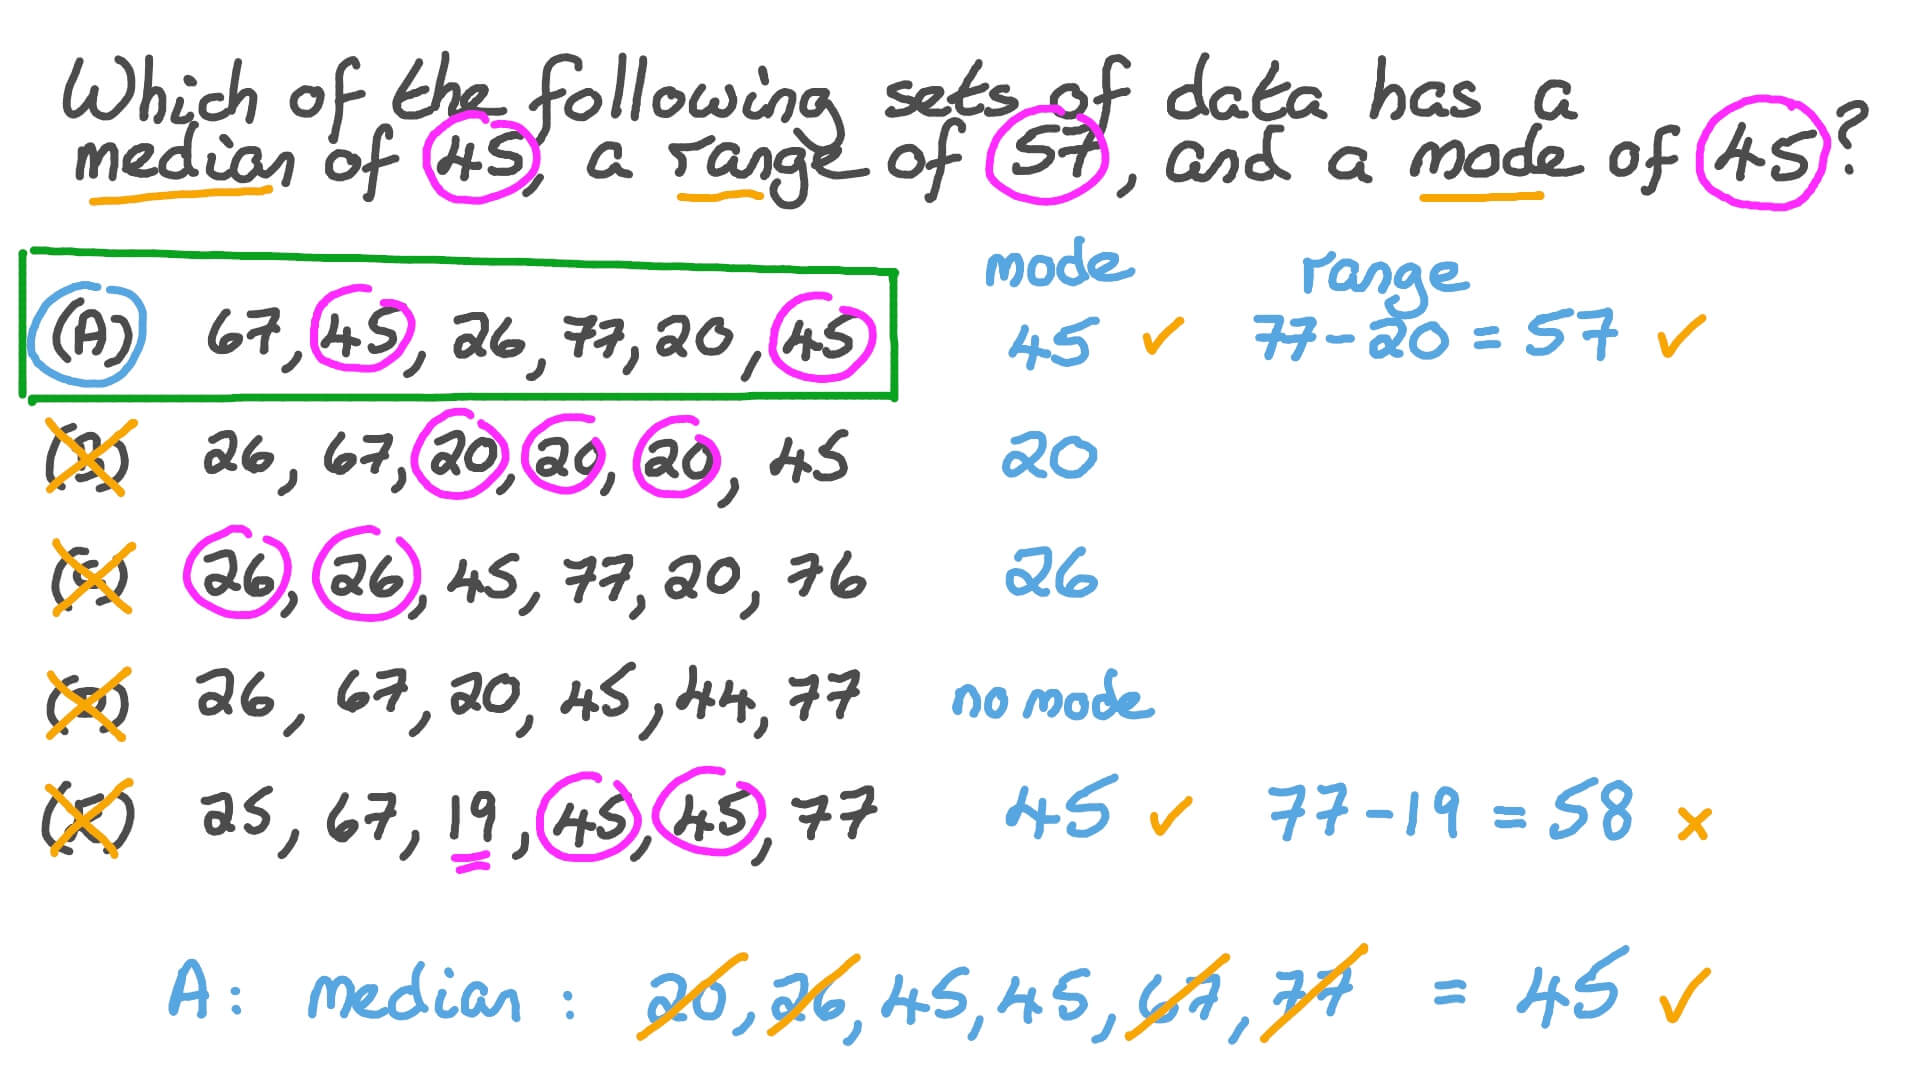 Which of the following sets of data has a
median of 45, a range of 57, and a mode of 45?
mode range
(A) 67, 45, 26, 77, 20, 45 45 ✓ 77-20 = 57 ✓
(B) 26, 67, 20, 20, 20, 45 20
26, 26, 45, 77, 20, 76 26
(D) 26, 67, 20, 45, 44, 77 no mode
(E) 25, 67, 19, 45, 45, 77 45 ✓ 77-19 = 58 ×
A: median : 20, 26, 45, 45, 67, 77 = 45 ✓